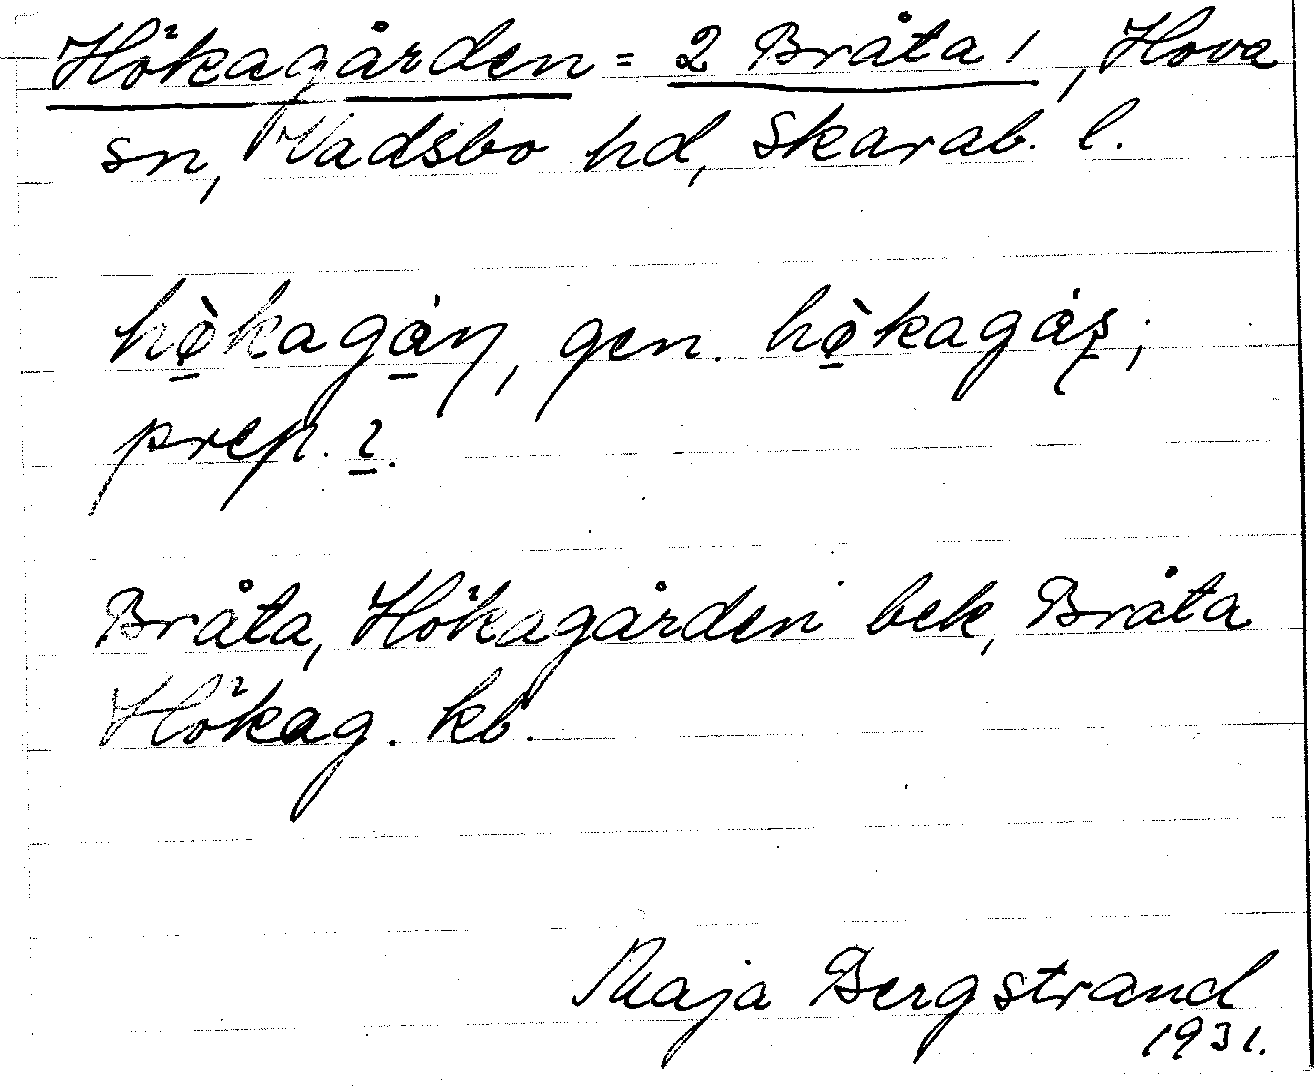 Hökagården = 2 Bråta 1, Hova
sn, Vadsbo hd, Skarab. l.
hø̠̀kagά̠ɳ, gen. hø̠̀kagάʂ;
prep. ɩ̠.
Bråta, Hökagården bek, Bråta
Hökag. kb.
Maja Bergstrand
1931.